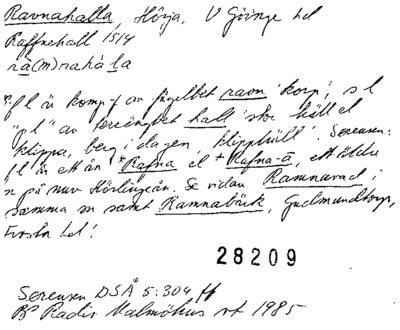 Ravnahalla, Hörja, V Göinge hd
Raffnehall 1514
rå(m)nahá la
fl är komp f av fågelbet ravn 'korp', s l
"pl" av terrängbet hall 'sten häll el
klippa, berg i dagen, klipphäll'. Sørensen:
fl är ett ån *Rafna el *Rafna-å, ett äldre
n på nuv Hörlingeån. Se vidare Ramnarad i
samma sn samt Ramnabäck, Gudmundtorp,
Frosta hd!
28209
Sørensen DSÅ 5:304 ff
Radio Malmöhus vt 1985